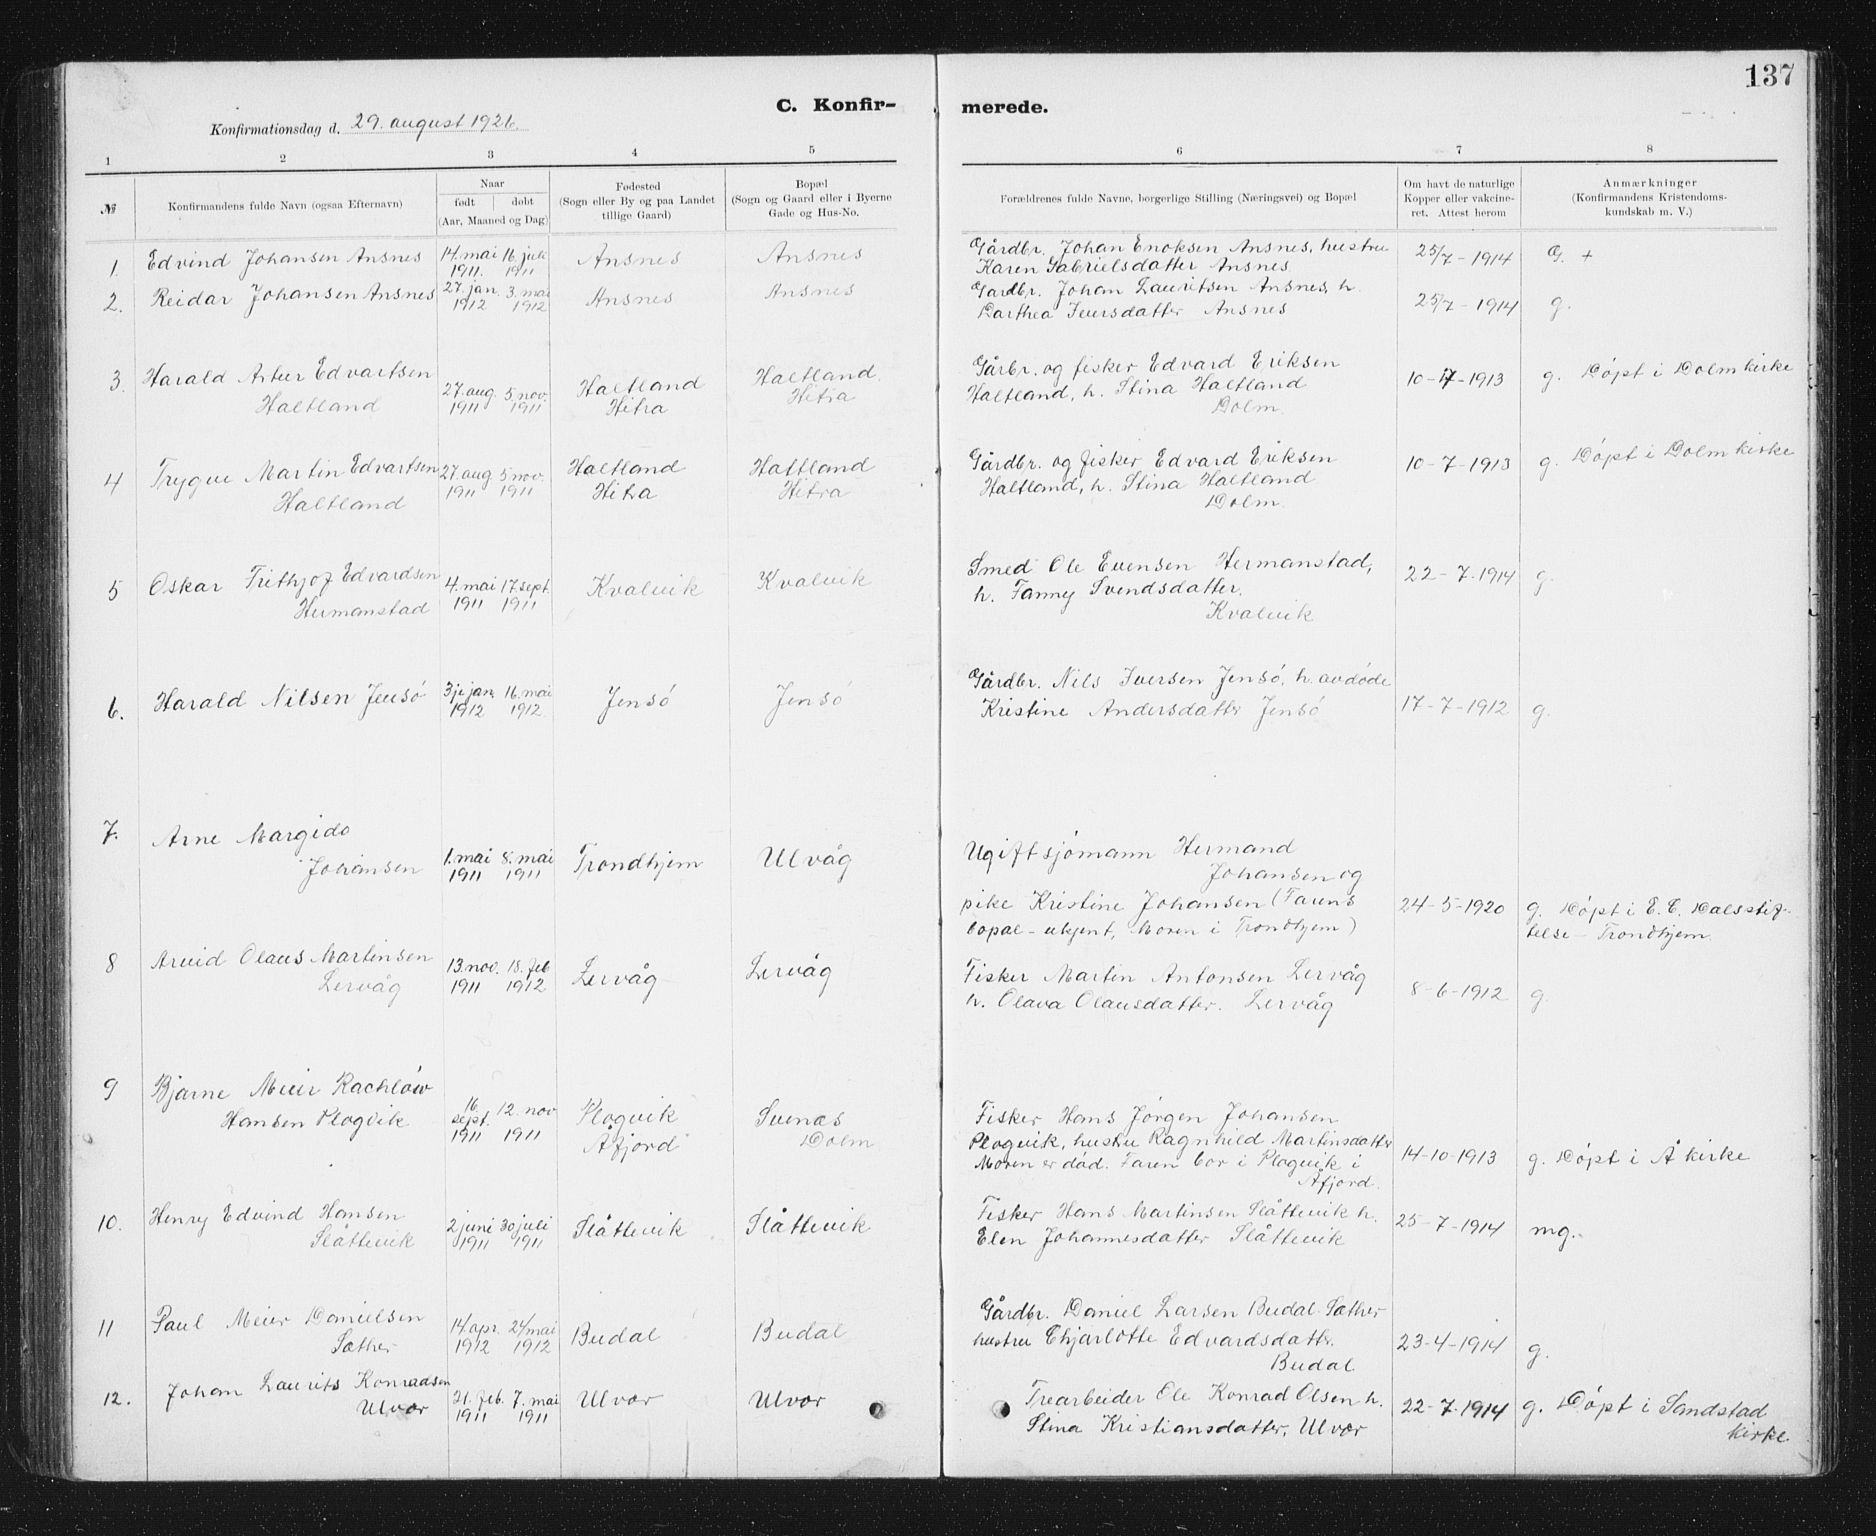 137
C. Konfir- merede.
Konfirmationsdag d. 29. august 1926.
1 2 3 4 5 6 7 8
№ Konfirmandens fulde Navn (ogsaa Efternavn)
Naar
født døbt
(Aar, Maaned og Dag)
Fødested
(Sogn eller By og paa Landet
tillige Gaard)
Bopæl
(Sogn og Gaard eller i Byerne
Gade og Hus-No.
Forældrenes fulde Navne, borgerlige Stilling (Næringsvei) og Bopæl
Om havt de naturlige
Kopper eller vakcine-
ret. Attest herom
Anmærkninger
(Konfirmandens Kristendoms-
kundskab m. V.)
1. Edvind Johansen Ansnes 14. mai 1911. 16. juli 1911 Ansnes Ansnes
Gårdbr. Johan Enoksen Ansnes, hustru
Karen Gabrielsdatter Ansnes
25/7 - 1914 G. +
2. Reidar Johansen Ansnes 27. jan. 1912 3. mai 1912 Ansnes Ansnes
Gardbr. Johan Lauritsen Ansnes, h.
Darthea Iversdatter Ansnes
25/7 - 1914 g.
3. Harald Artur Edvartsen
Haltland
27. aug. 1911 5 nov. 1911
Haltland
Hitra
Haltland
Hitra
Gårbr. og fisker Edvard Eriksen
Haltland, h. Stina Haltland
Dolm.
10-7-1913 g. Döpt i Dolm kirke
4 Trygve Martin Edvartsen
Haltland
27. aug 1911 5 nov. 1911
Haltland
Hitra
Haltland
Hitra
Gårdbr. og fisker Edvard Eriksen
Haltland, h. Stina Haltland
Dolm.
10-7-1913 g. Döpt i Dolm kirke
5 Oskar Frithjof Edvardsen
Hermanstad
4. mai 1911 17. sept. 1911
Kvalvik Kvalvik
Smed Ole Evensen Hermanstad,
h. Fanny Svendsdatter.
Kvalvik
22-7-1914 g.
6. Harald Nilsen Jensö 3je jan. 1912 16. mai 1912. Jensö Jensö
Gårdbr. Nils Iversen Jensö, h. avdöde
Kristine Andersdatter Jensö
17-7-1912 g.
7. Arne Margido
Johansen
1. mai 1911 8. mai 1911
Trondhjem Ulvåg
Ugift sjömann Hermand
Johansen og
pike Kristine Johansen (Farens
bopæl - ukjent, Moren i Trondhjem)
24-5-1920 g. Döpt i E. C. Dalsstif-
telse - Trondhjem.
8 Arvid Olaus Martinsen
Lervåg
13. nov. 1911 18. feb 1912
Lervåg Lervåg
Fisker Martin Antonsen Lervåg
h. Olava Olausdatter. Lervåg
8-6-1912 g.
9 Bjarne Meier Rachlöw
Hansen Plogvik
16 sept. 1911 12. nov 1911
Plogvik
Åfjord
Svenæs
Dolm
Fisker Hans Jörgen Johansen
Plogvik, hustru Ragnhild Martinsdatter
Moren er död. Faren bor i Plogvik i
Åfjord.
14-10-1913 g. Döpt i Å kirke
10. Henry Edvind Hansen
Slåttevik
2 juni 1911 30 juli 1911
Slåttevik Slåttevik
Fisker Hans Martinsen Slåttevik h.
Elen Johannesdatter Slåttevik
25-7-1914 mg.
11 Paul Meier Danielsen
Sæther
14. apr. 1912 24 mai 1912
Budal Budal
Gårdbr. Daniel Larsen Budal-Sæther
hustru Chjarlotte Edvardsdatter.
Budal
23-4-1914 g.
12. Johan Laurits Konradsen
Ulvær
21. feb. 1911 7. mai 1911
Ulvær Ulvær
Trearbeider Ole Konrad Olsen h.
Stina Kristiansdatter, Ulvær
22-7-1914 g. Döpt i Sandstad
kirke